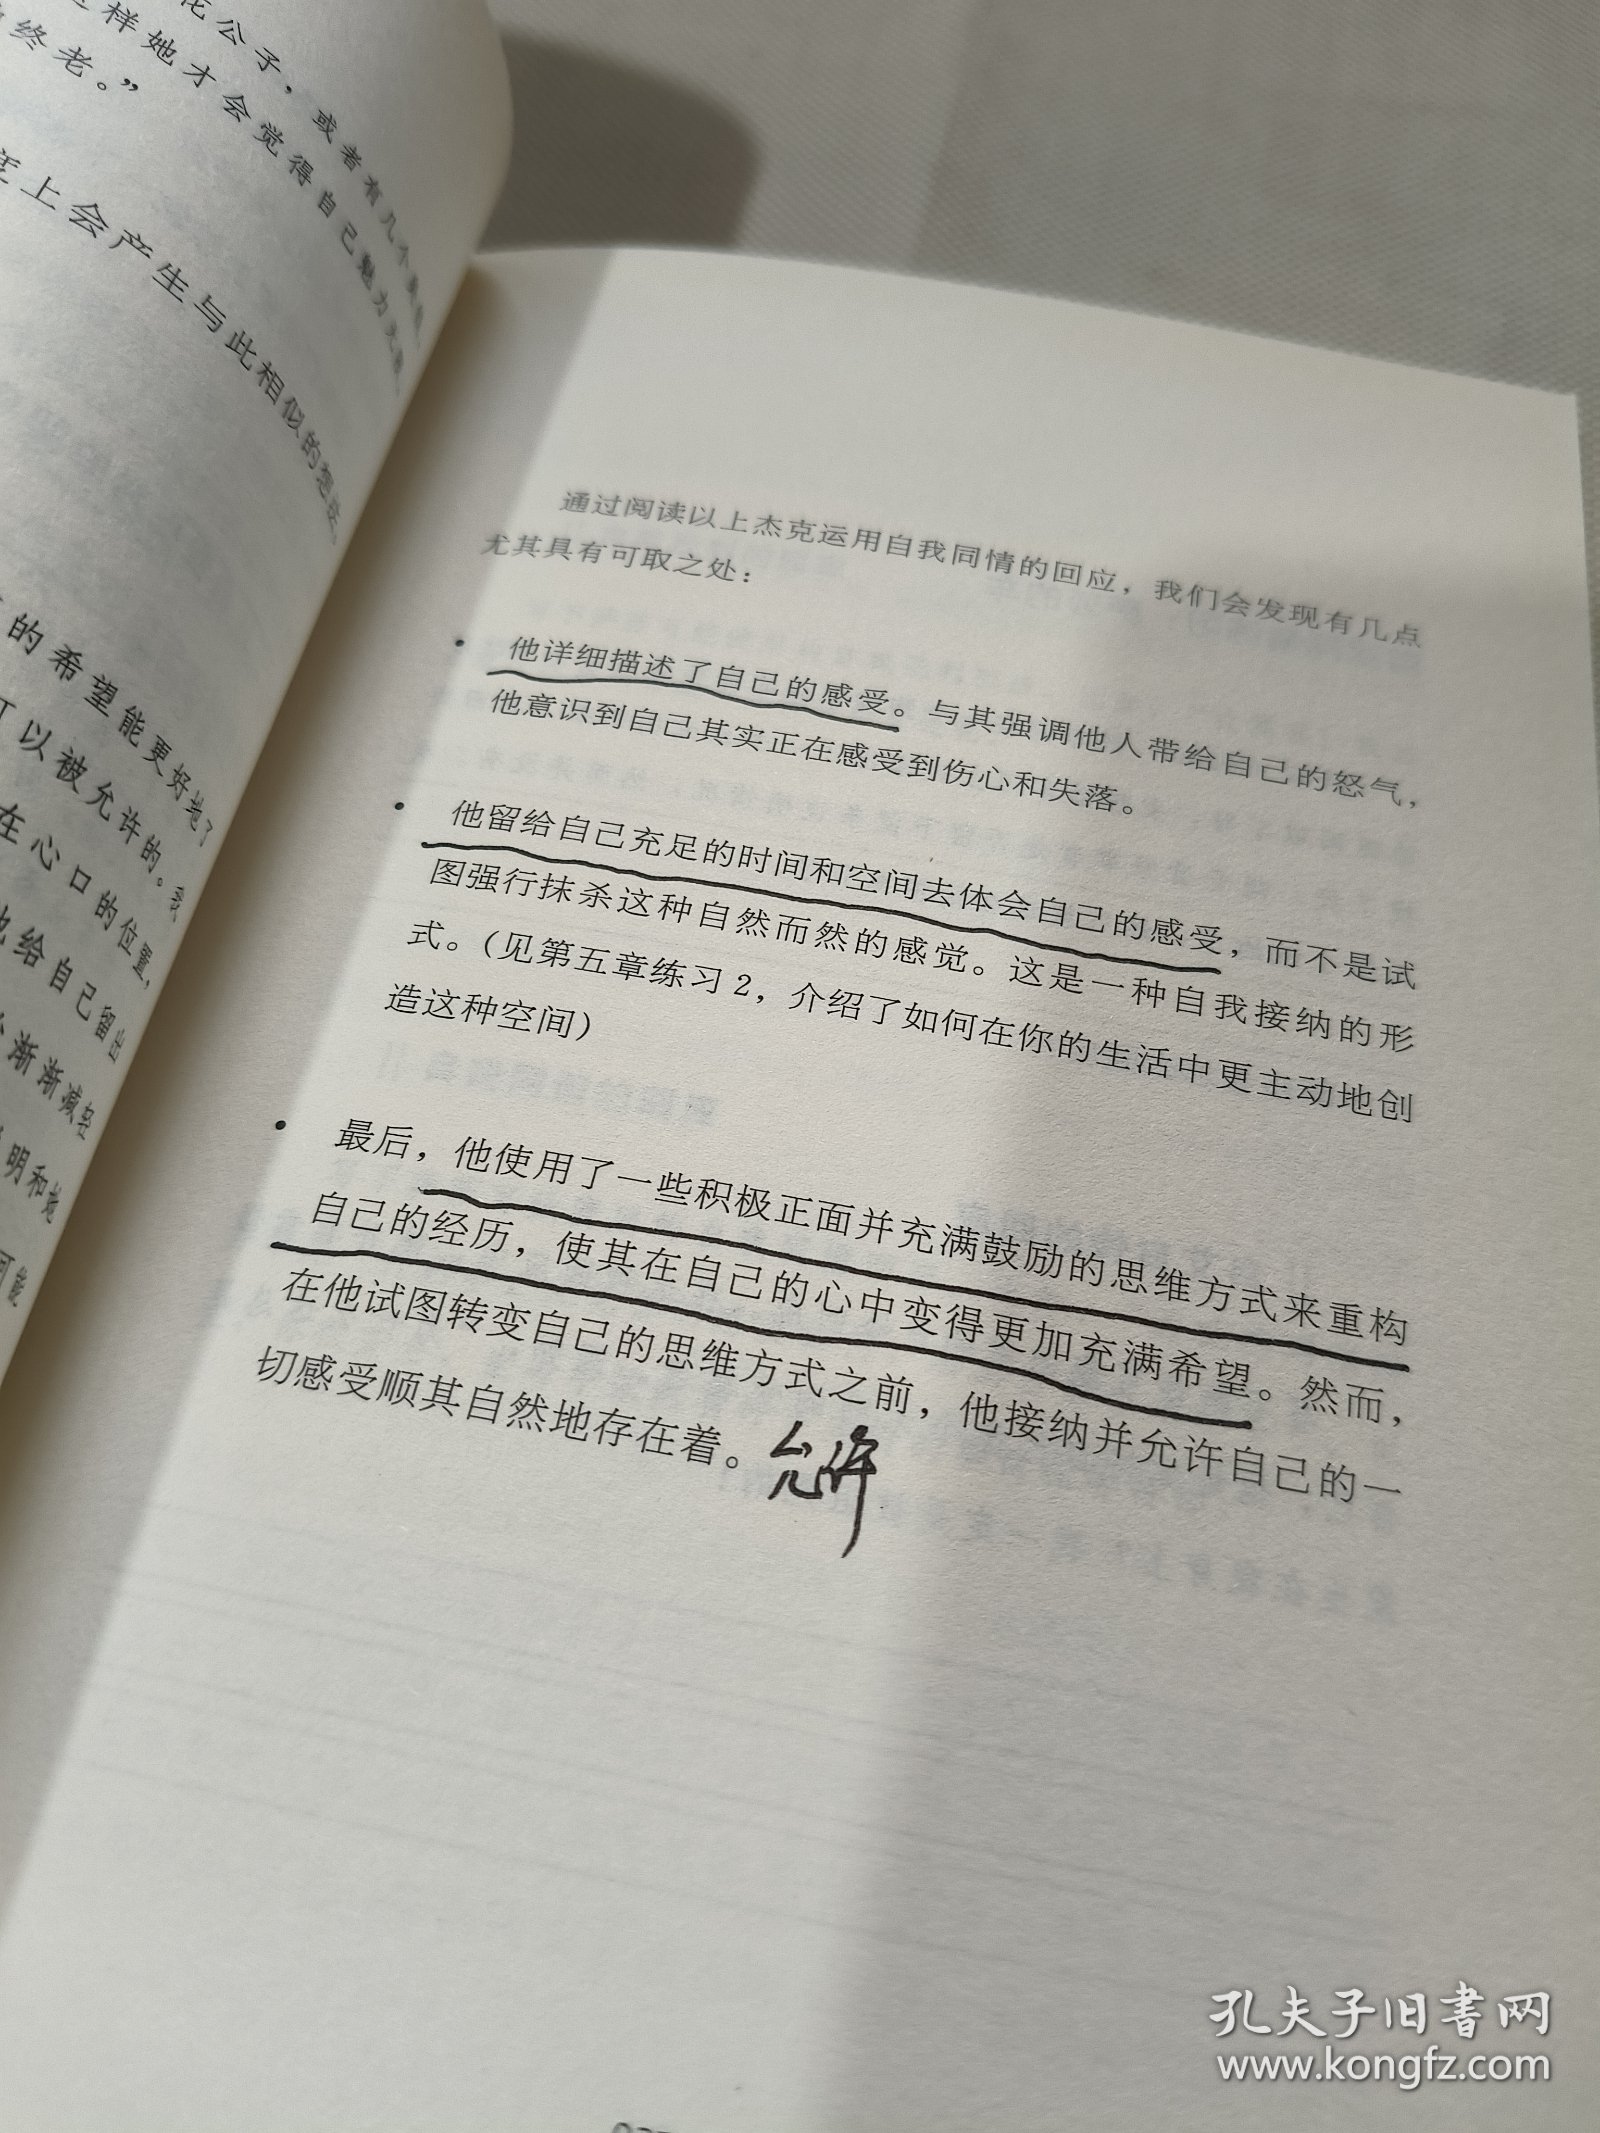 花公子，或者有几个
样她才会觉得自己魅力大
终老。”
上会产生与此相似的想法
的希望能更好地
可以被允许的。我
在心口的位置，
给自己留出
渐渐减轻
明和
可能
通过阅读以上杰克运用自我同情的回应，我们会发现有几点
尤其具有可取之处：
• 他详细描述了自己的感受。与其强调他人带给自己的怒气，
他意识到自己其实正在感受到伤心和失落。
• 他留给自己充足的时间和空间去体会自己的感受，而不是试
图强行抹杀这种自然而然的感觉。这是一种自我接纳的形
式。（见第五章练习2，介绍了如何在你的生活中更主动地创
造这种空间）
• 最后，他使用了一些积极正面并充满鼓励的思维方式来重构
自己的经历，使其在自己的心中变得更加充满希望。然而，
在他试图转变自己的思维方式之前，他接纳并允许自己的一
切感受顺其自然地存在着。允许
孔夫子旧书网
www.kongfz.com